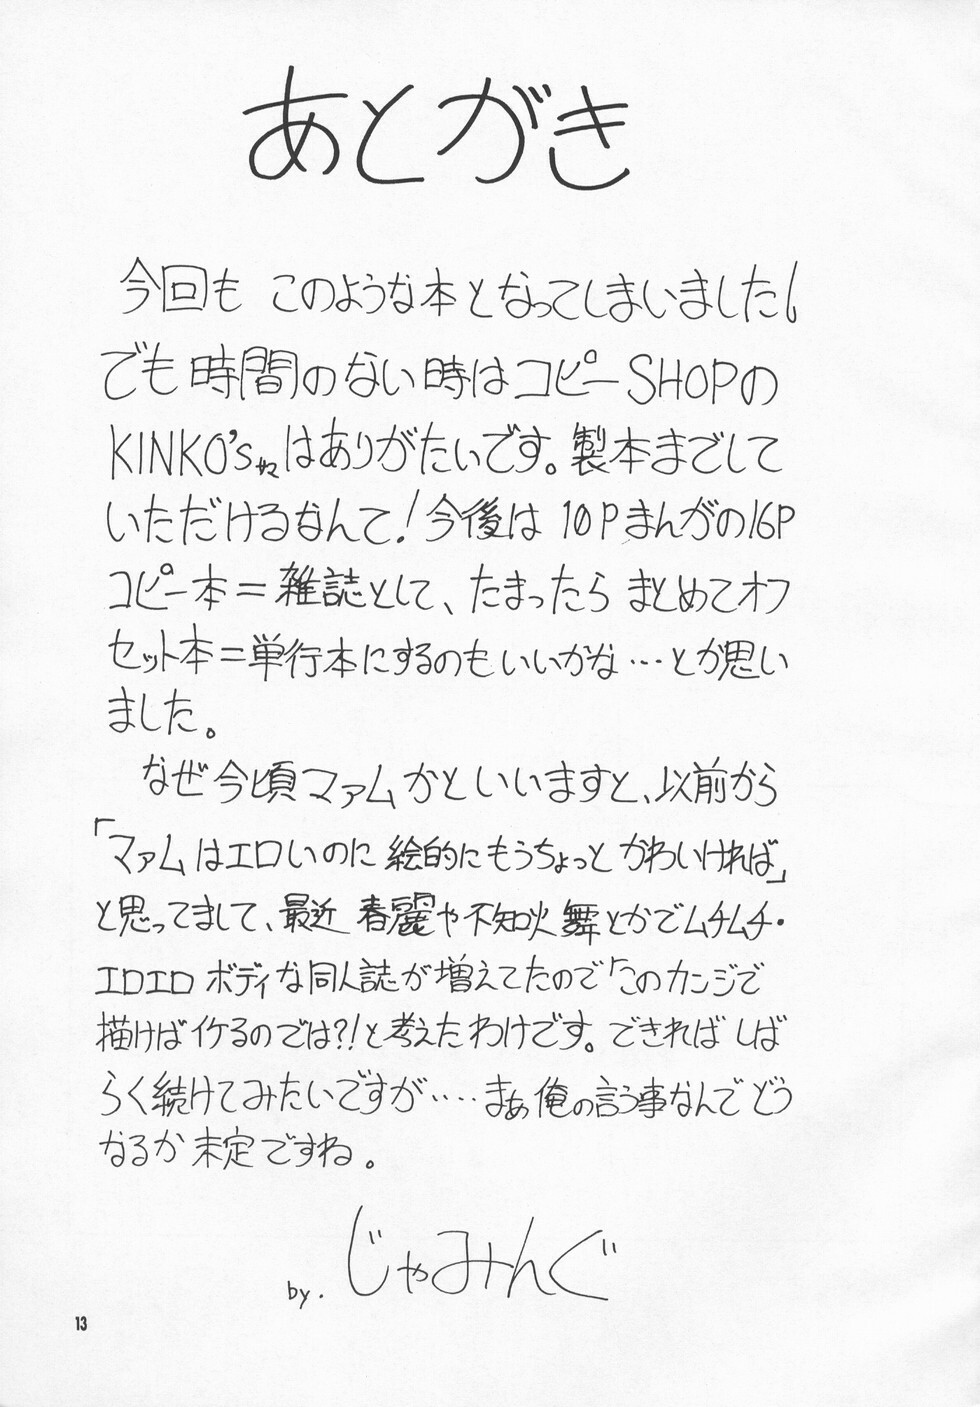 あとがき
今回も このような本となってしまいました!
でも時間のない時はコピーSHOPの
KINKO'sさまはありがたいです。製本までして
いただけるなんて!今後は 10Pまんがの16P
コピー本=雑誌として、たまったら まとめてオフ
セット本=単行本にするのもいいかな…とか思い
ました。
なぜ今頃マァムかといいますと、以前から
「マァムはエロいのに 絵的にもうちょっと かわいければ」
と思ってまして、最近 春麗や不知火 舞とかでムチムチ・
エロエロ ボディな同人誌が増えてたので「このカンジで
描けばイケるのでは?!と考えたわけです。できれば しば
らく続けてみたいですが‥‥まぁ俺の言う事なんで どう
なるか 未定ですね。
by. じゃみんぐ
13